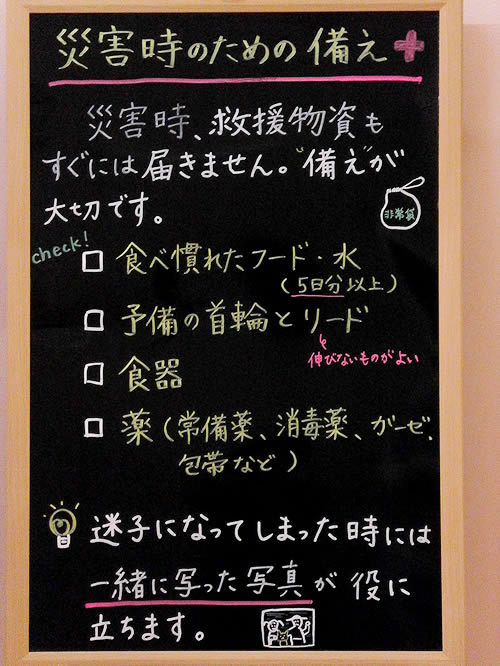 災害時のための備え
災害時、救援物資も
すぐには届きません。"備え"が
大切です。
非常袋
check!
□ 食べ慣れたフード・水
(5日分以上)
□ 予備の首輪とリード
伸びないものがよい
□ 食器
□ 薬(常備薬、消毒薬、ガーゼ、
包帯など)
迷子になってしまった時には
一緒に写った写真が役に
立ちます。